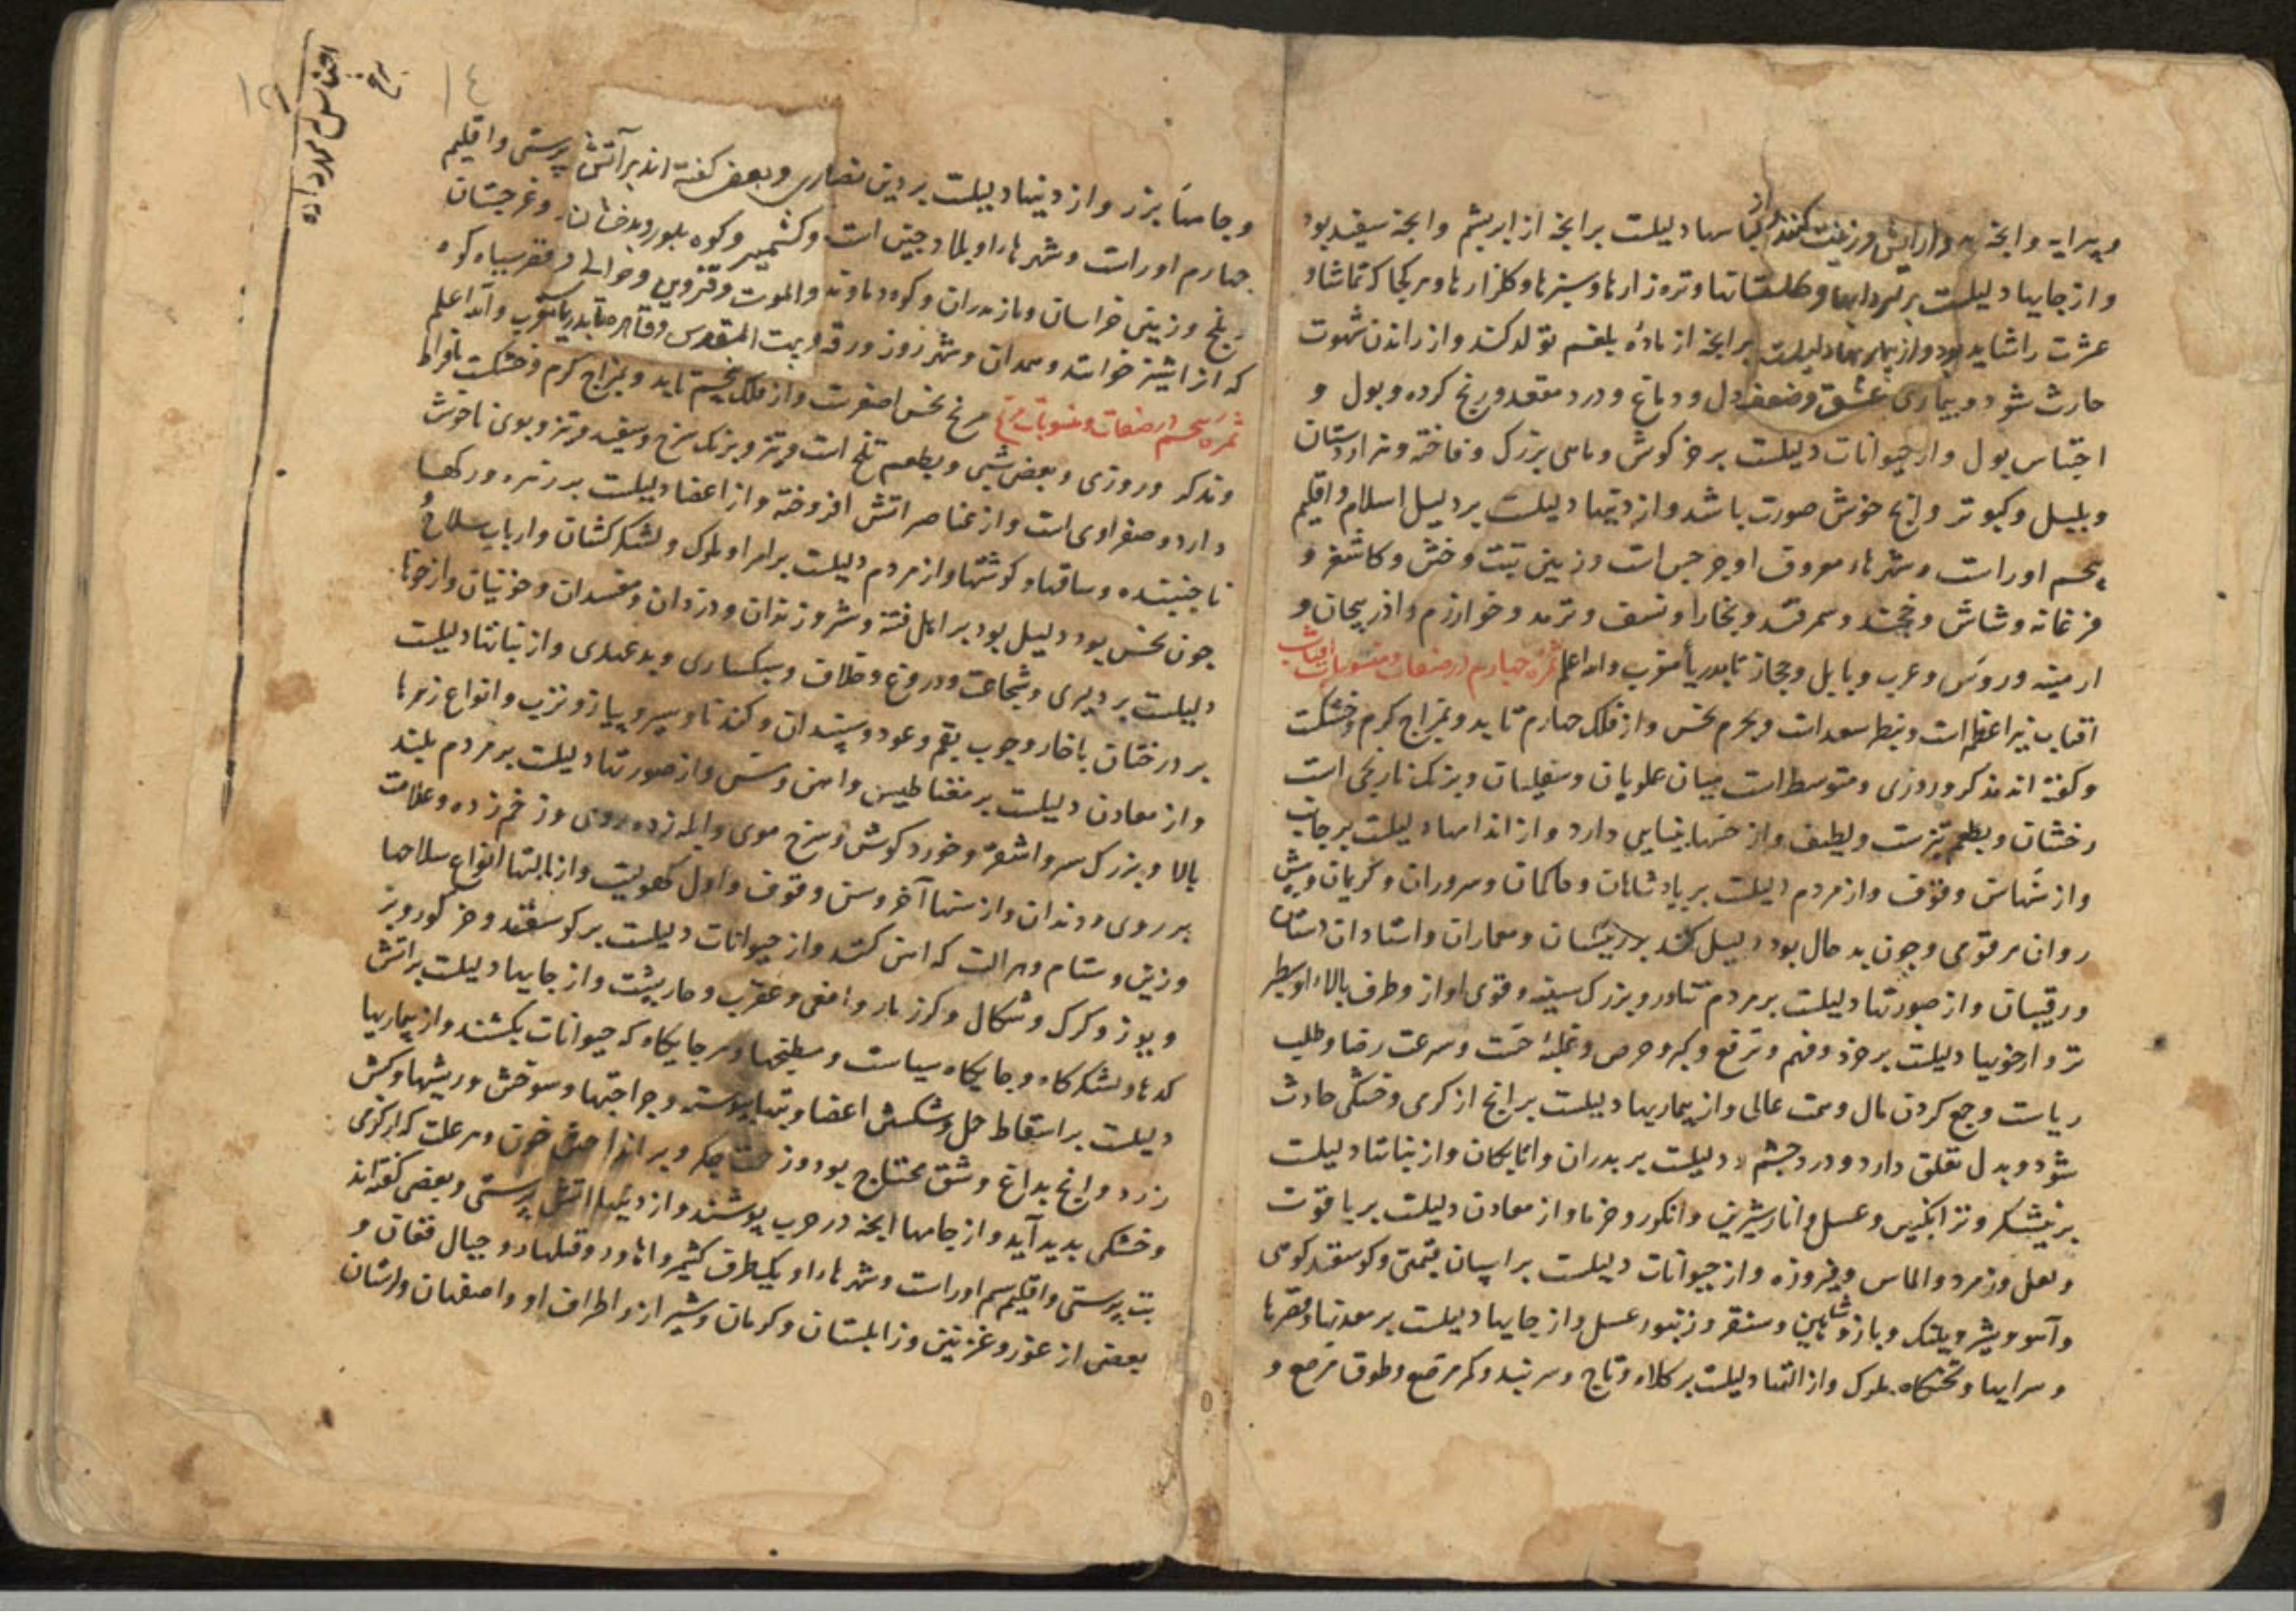 و پیرایه و انچه بدو ارایش و زینت کنند و از لباسها دلیلست بر انچه از ابریشم و انچه سفید بود
و از جایها دلیلست بر و کلستانها و تره زارها و سبزها و کلزارها و هر کجا که تماشا و
عشرت را شاید بود و از بیماریها دلیلست بر انچه از ماده بلغم تولد کند و از راندن شهوت
حادث شود و بیماری عشق و ضعف دل و دماغ و درد مقعد و رنج کرده و بول و
احتباس بول و از حیوانات دلیلست بر خرکوش و ماهی بزرک و فاخته و هزاردستان
و بلبل و کبوتر و انچ خوش صورت باشد و از دینها دلیلست بر دلیل اسلام و اقلیم
پنجم اوراست و شهرهاء معروف او جرجس است و زمین تبت و ختن و کاشغر و
فرغانه و شاش و خجند و سمرقند و بخارا و نسف و ترمد و خوارزم و اذربیجان و
ارمینه و روس و عرب و بابل و حجاز تا بدریأ مغرب والله اعلم ثمره چهارم در صفات و منسوبات افتاب
افتاب نیر اعظم است و بنظر سعد است و بجرم نحس و از فلک چهارم تابد و بمزاج کرم و خشکست
و کفته اند مذکر و روزی و متوسط است میان علویان و سفلیان و برنک نارنجی است
رخشان و بطعم تیزست و لطیف و از حسها بینایی دارد و از اندامها دلیلست بر جانب
و از سنهاش وقوف و از مردم دلیلست بر پادشاهان و حاکمان و سروران و کریمان و پیش
روان هر قومی و چون بد حال بود دلیل کند بر رئیسان و معماران و استادان دستان
و رقیبان و از صورتها دلیلست بر مردم تناور و بزرک سینه و قوی اواز و طرف بالاء او سطبر
تر و از خویها دلیلست بر خرد و فهم و ترفع و کبر و حرص و غلبه خشت و سرعت رضا و طلب
ریاست و جمع کردن مال و همت عالی و از بیماریها دلیلست بر انچ از کرمی و خشکی حادث
شود و بدل تعلق دارد و درد چشم و دلیلست بر پدران و اتابکان و از نباتها دلیلست
بر نیشکر و ترانکبین و عسل و انار شیرین و انکور و خرما و از معادن دلیلست بر یاقوت
و لعل و زمرد و الماس و فیروزه و از حیوانات دلیلست بر اسپان قیمتی و کوسفند کوهی
و آهو و شیر و پلنک و باز و شاهین و سنقر و زنبور عسل و از جایها دلیلست بر معدنها و قصرها
و سرایها و تختکاه ملوک و از التها دلیلست بر کلاه و تاج و سربند و کمر مرصع و طوق مرصع و
١٤
مریخ
و جامها بزر و از دینها دلیلست بر دین نصاری و بعضی کفته اند بر آتش پرستی و اقلیم
چهارم اوراست و شهرهاء او بلاد چین است و کشمیر و کوه بلور و بدخشان و غرجستان
و بلخ و زمین خراسان و مازندران و کوه دماوند و الموت و قزوین و حوالی و قصر سیاه کوه
که انرا شیز خوانند و همدان و شهرزور و رقه و بیت المقدس و قاهره تا بدریأ مغرب والله اعلم
ثمره پنجم در صفات و منسوبات مریخ مریخ نحس اصغرست و از فلک پنجم تابد و بمزاج کرم و خشکست بافراط
و مذکر و روزی و بعضی شبی و بطعم تلخ است و تیز و برنک سرخ و سفید و تیز و بوی ناخوش
دارد و صفراوی است و از عناصر اتش افروخته و از اعضا دلیلست بر زهره و رکها
ناجنبنده و ساقها و کوشتها و از مردم دلیلست بر امرا و ملوک و لشکرکشان و ارباب سلاح
چون نحس بود دلیل بود بر اهل فتنه و شر و رندان و دزدان و مفسدان و خونیان و از خوها
دلیلست بر دلیری و شجاعت و دروغ و خلاف و سبکساری و بدعهدی و از نباتها دلیلست
بر درختان با خار و چوب بقم و عود و سپندان و کندنا و سیر و پیاز و ترب و انواع زهرها
و از معادن دلیلست بر مغناطیس و اهن و مس و از صورتها دلیلست بر مردم بلند
بالا و بزرک سر و اشقر و خورد کوش و سرخ موی و ابله زده روی و زخم زده و علامت
بر روی و دندان و از سنها آخر و سن وقوف و اول کهولیت و از التها انواع سلاحها
و زین و ستام و هر الت که اهن کند و از حیوانات دلیلست بر کوسفند و خر کور و بز
و یوز و کرک و شکال و کرز مار و افعی و عقرب و خارپشت و از جایها دلیلست بر اتش
کدها و لشکرکاه و جایکاه سیاست و مطبخها و هر جایکاه که حیوانات بکشند و از بیماریها
دلیلست بر اسقاط حمل و شکستن اعضا و تبها پیوسته و جراحتها و سوختن و ریشها و کش
زرد و انچ بداغ و شق محتاج بود و زحمت جکر و بر انداختن خون و هر علت که از کرمی
و خشکی پدید آید و از جامها انچه در حرب پوشند و از دینها اتش پرستی و بعضی کفته اند
بت پرستی و اقلیم سیم اوراست و شهرهاء او یکطرف کشمیر و لهاور و و جبال فغان و
بعضی از غور و غزنین و زابلستان و کرمان و شیراز و اطراف او و اصفهان و لرستان